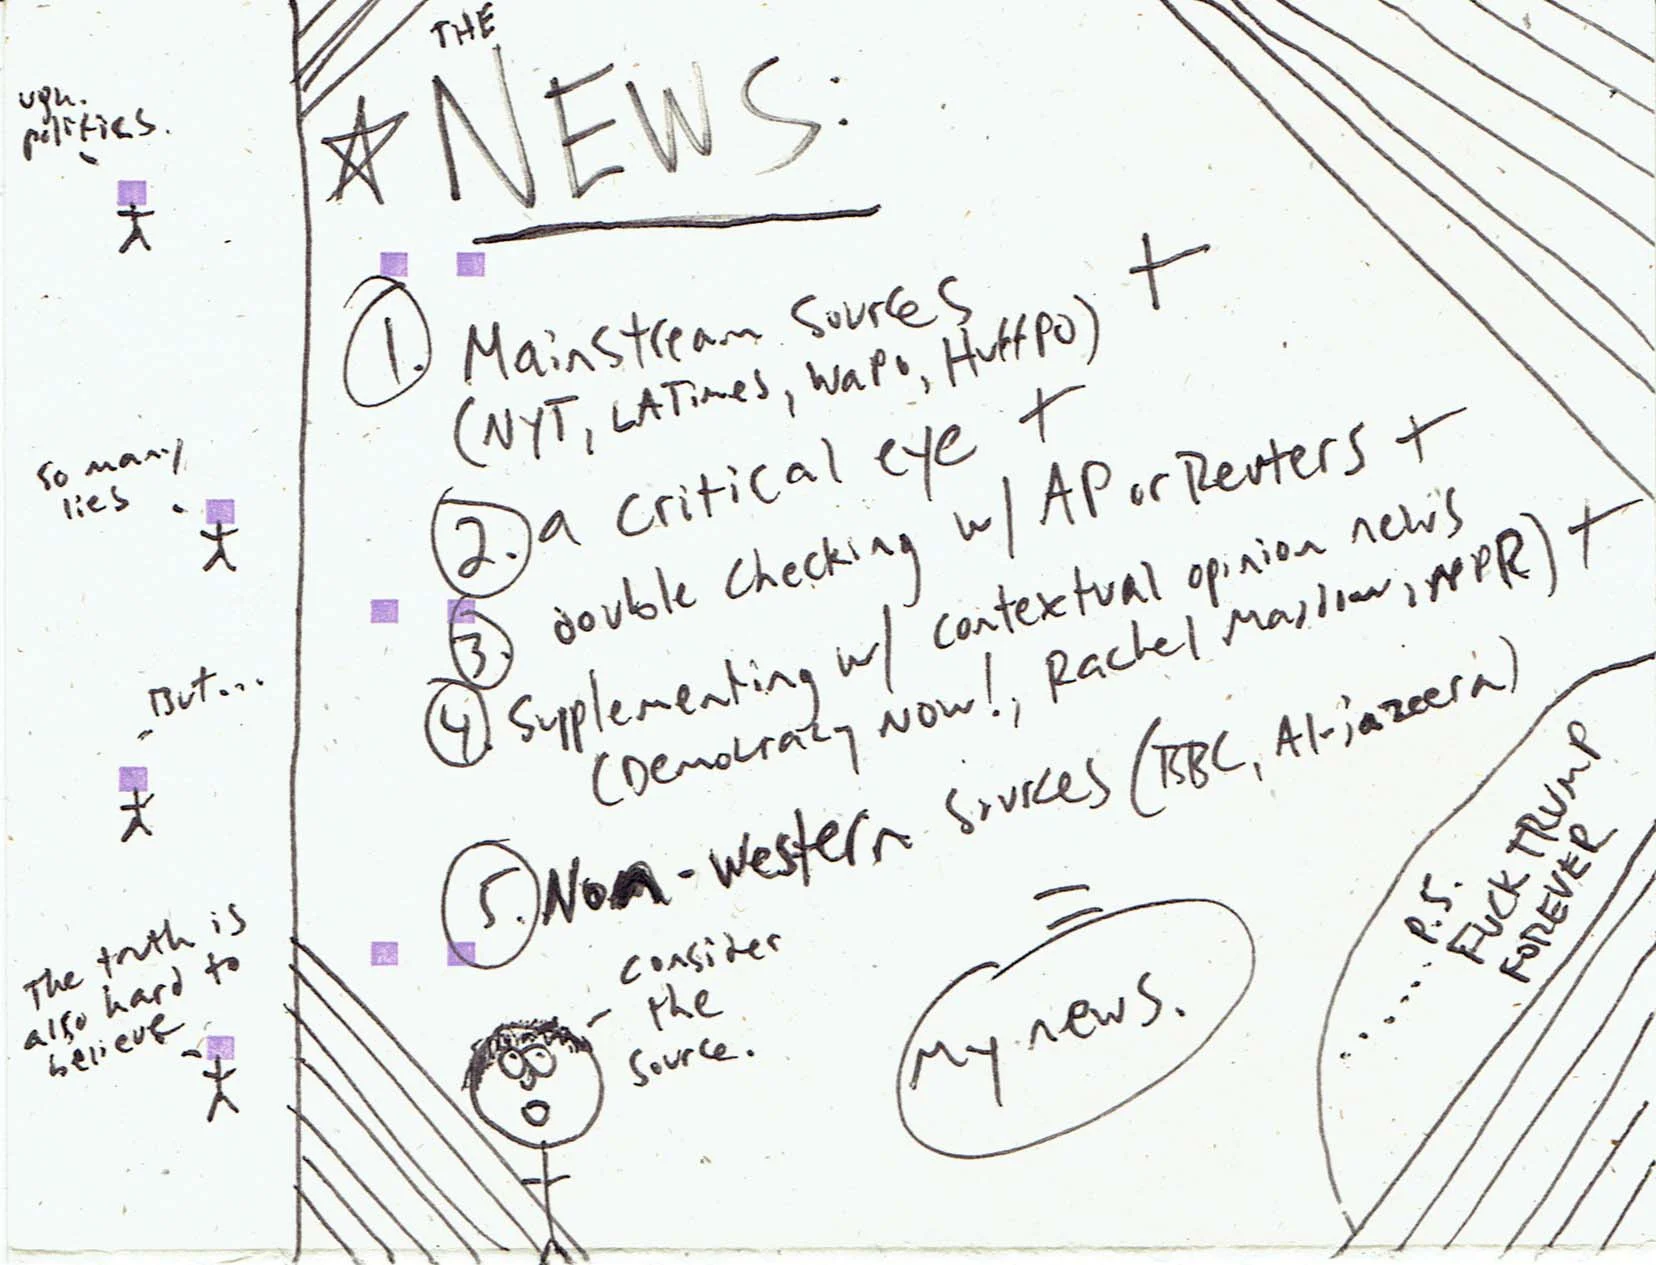 ugh.
politics.
so many
lies
But...
The truth is
also hard to
believe
THE
NEWS:
1. Mainstream sources
(NYT, LATimes, WaPo, HuffPO) +
2. a critical eye +
3. double checking w/ AP or Reuters +
4. Supplementing w/ contextual opinion news
(Democracy Now!, Rachel Maddow, NPR) +
5. Non-Western sources (BBC, Al-jazeera)
=
my news.
consider
the
source.
P.S.
FUCK TRUMP
FOREVER
.....